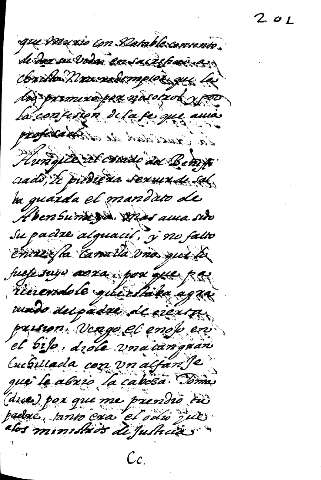 201
que murio con Notable contento
de dar su vida en
Nro redemptor que la
dio primero por nosotros y por
la confusion de la fe que avia
profesado
Aunque al criado del Benefi
ciado, le pudiera servir de sal
va guarda el mandato de
Abenhumeya. Mas avia sido
su padre alguacil, y no falto
entre esta canalla uno que le
fuese suyo aora, por que pa
reciendole que estaba agra
viado del padre de cierta
prision. Vengo el enojo en
el hijo, diole una tan gran
cuchillada con un alfanje
que le abrio la cabesa. Toma
(dice) por que me prendio tu
padre, tanto era el odio que
a los ministros de Justicia
Cc.